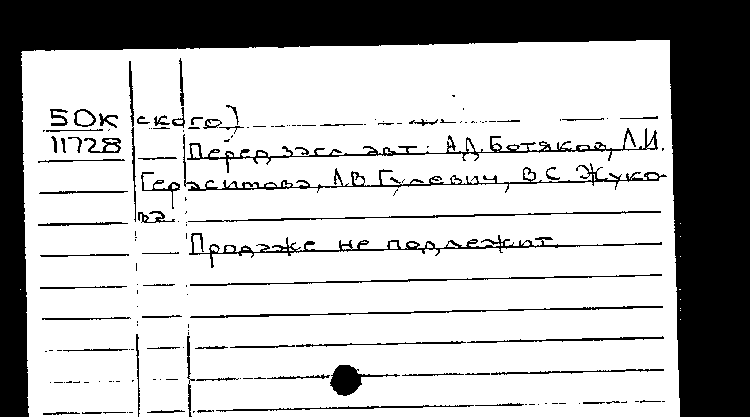 50к ского)
11728 Перед загл. авт: А.Д. Ботяков, Л.И.
Герасимова, Л.В. Гулевич, В.С. Жуко-
ва.
Продаже не подлежит.